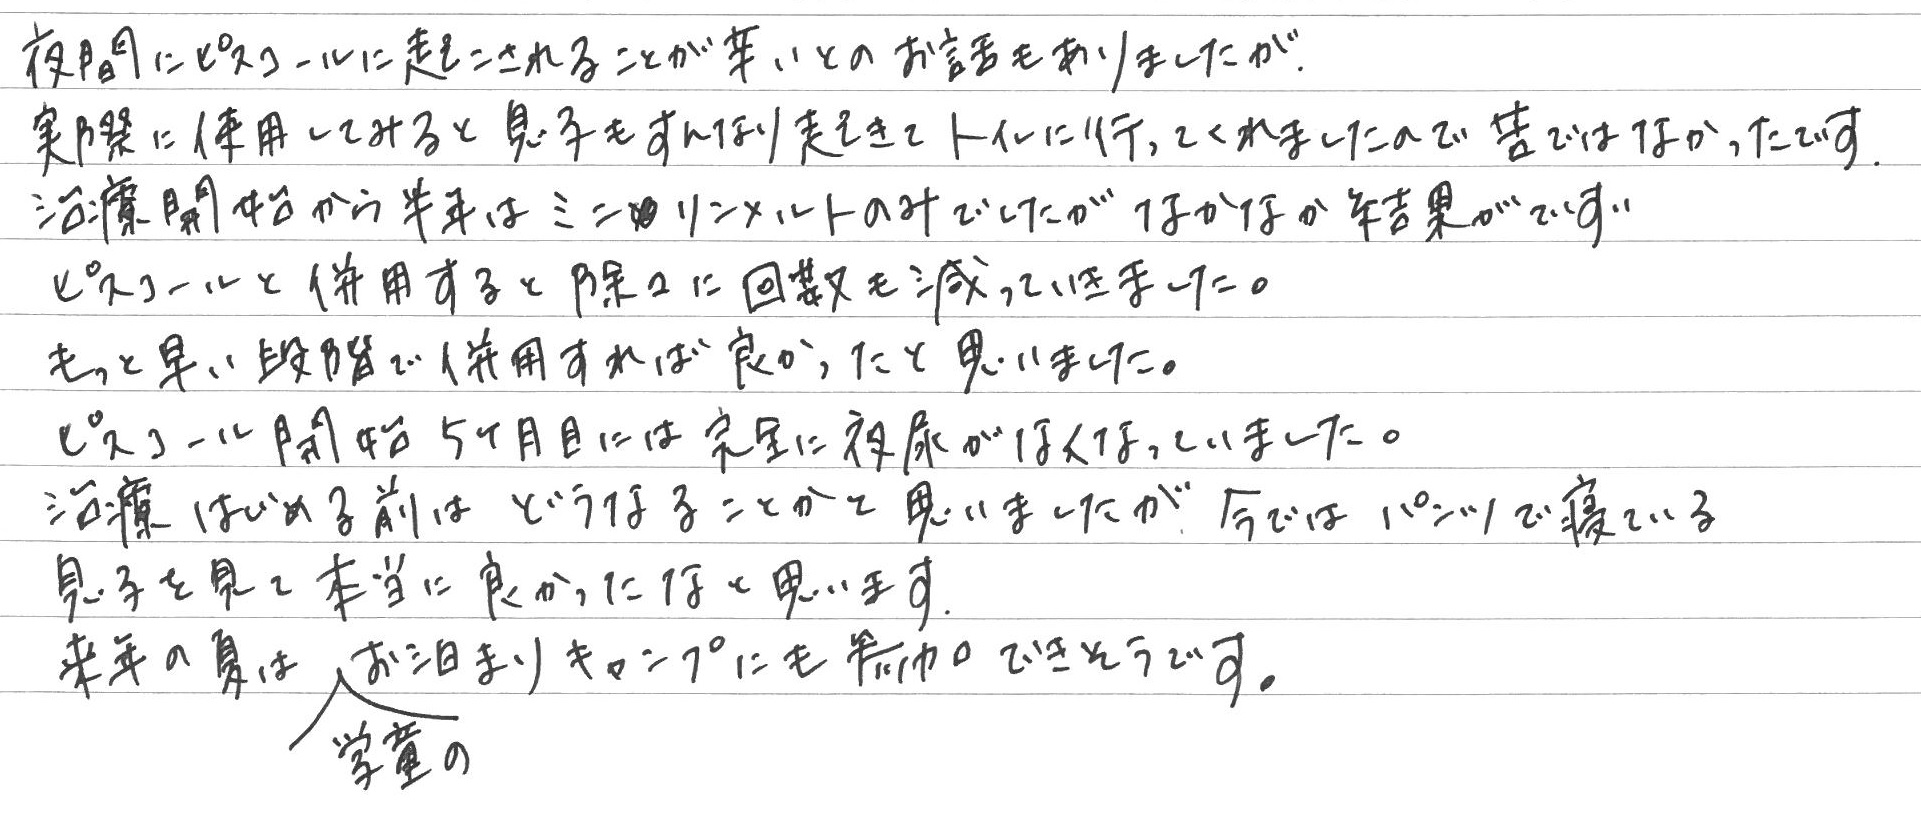 夜間にピスコールに起こされることが辛いとのお話もありましたが、
実際に使用してみると息子もすんなり起きてトイレに行ってくれましたので苦ではなかったです。
治療開始から半年はミニリンメルトのみでしたがなかなか結果がでず…
ピスコールと併用すると徐々に回数も減っていきました。
もっと早い段階で併用すれば良かったと思いました。
ピスコール開始5ケ月目には完全に夜尿がなくなっていました。
治療はじめる前はどうなることかと思いましたが、今ではパンツで寝ている
息子を見て本当に良かったなと思います。
来年の夏は学童のお泊まりキャンプにも参加できそうです。